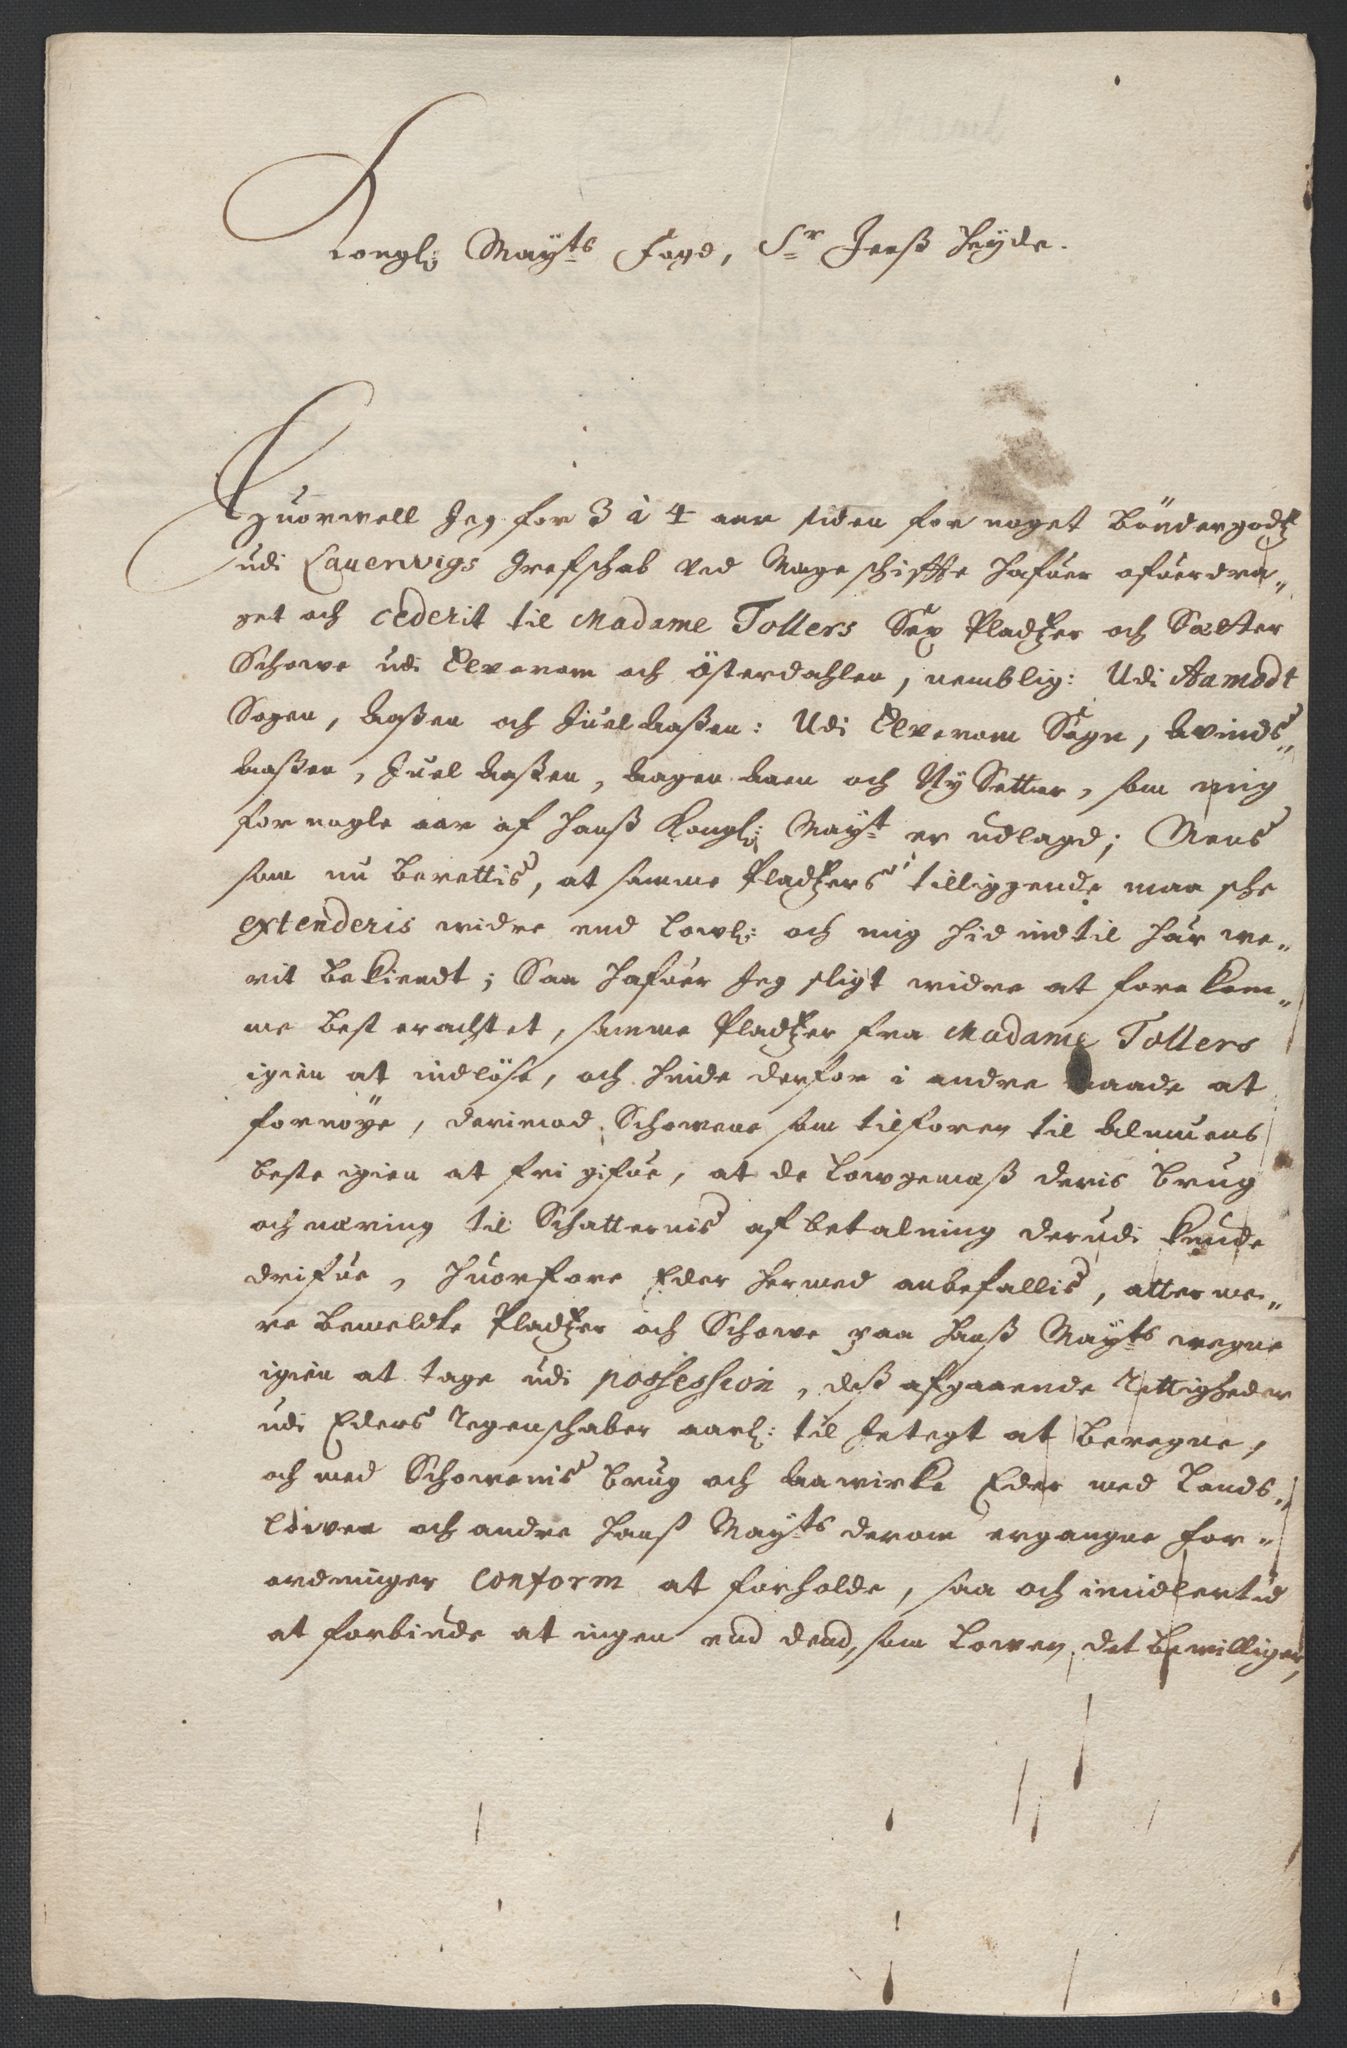 Kongl: Mayts Fogd, Sr Jenß Heyde.
Huorwell Jeg for 3 à 4 aar siden for nogetBöndergodtz
udi Laverwigs Grefschab ved Mageschiffte hafuer ofuerdra-
get och cederit til Madame Tollers Sex Pladtzer och Sæelter
Schowe udi Elverom och Österdahlen, nemblig: Udi Aamodt
Sogen, Aaßen och Juel Aaßen: Udi Elverom Sogn, Qvinds-
Aaßen, Juel Aaßen, och Ny Setter, som mig
for nogle aar af Hanß Kongl: Mayt er udlagd; Mens
som nu berettis, at samme Pladtzers tilliggende maa sche
extenderis widre end Lowl: och mig hid indtil har we-
rit bekiendt; Saa hafuer Jeg sligt widre at forekom-
me best erachtet, samme Pladtzer fra Madame Tollers
igien at indlöse, och hende derfor i andre maade at
fornöye, derimod Schowene som tilforen til Almuens
beste igien at frigifue, at de Lowgemæß deris brug
och næring til Schatternis afbetalning derudi kunde
drifue, Huorfore Eder hermed anbefallis, atter me-
re bemeldte Pladtzer och Schowe paa Hanß Mayts wegne
igien at tage udi possession, deß afgaaende Rettigheder
udi Eders Regenschaber aarl: til Jntegt at beregne,
och med Schowenis brug och Aawirke Eder med Lands-
lowen och andre Hanß Mayts derom ergangne for-
ordninger conform at forholde, saa och imidlertid
at forbinde at ingen end dend, som Lowen det bewilliger,